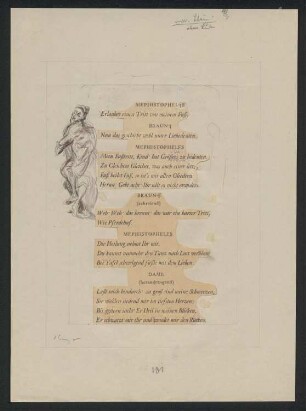 MEPHISTOPHELES
Erlaubet einen Tritt von meinem Fuß.
BRAUNE
Nun das geschieht wohl unter Liebesleuten.
MEPHISTOPHELES
Mein Fußtritt, Kind! hat Größres zu bedeuten.
Zu Gleichem Gleiches, was auch einer litt;
Fuß heilet Fuß, so ist's mit allen Gliedern.
Heran! Gebt acht! Ihr sollt es nicht erwidern.
BRAUNE
(schreiend)
Weh! Weh! das brennt! das war ein harter Tritt,
Wie Pferdehuf.
MEPHISTOPHELES
Die Heilung nehmt Ihr mit.
Du kannst nunmehr den Tanz nach Lust verüben,
Bei Tafel schwelgend füßle mit dem Lieben.
DAME
(herandringend)
Laßt mich hindurch! zu groß sind meine Schmerzen,
Sie wühlen siedend mir im tiefsten Herzen;
Bis gestern sucht' Er Heil in meinen Blicken,
Er schwatzt mit ihr und wendet mir den Rücken.